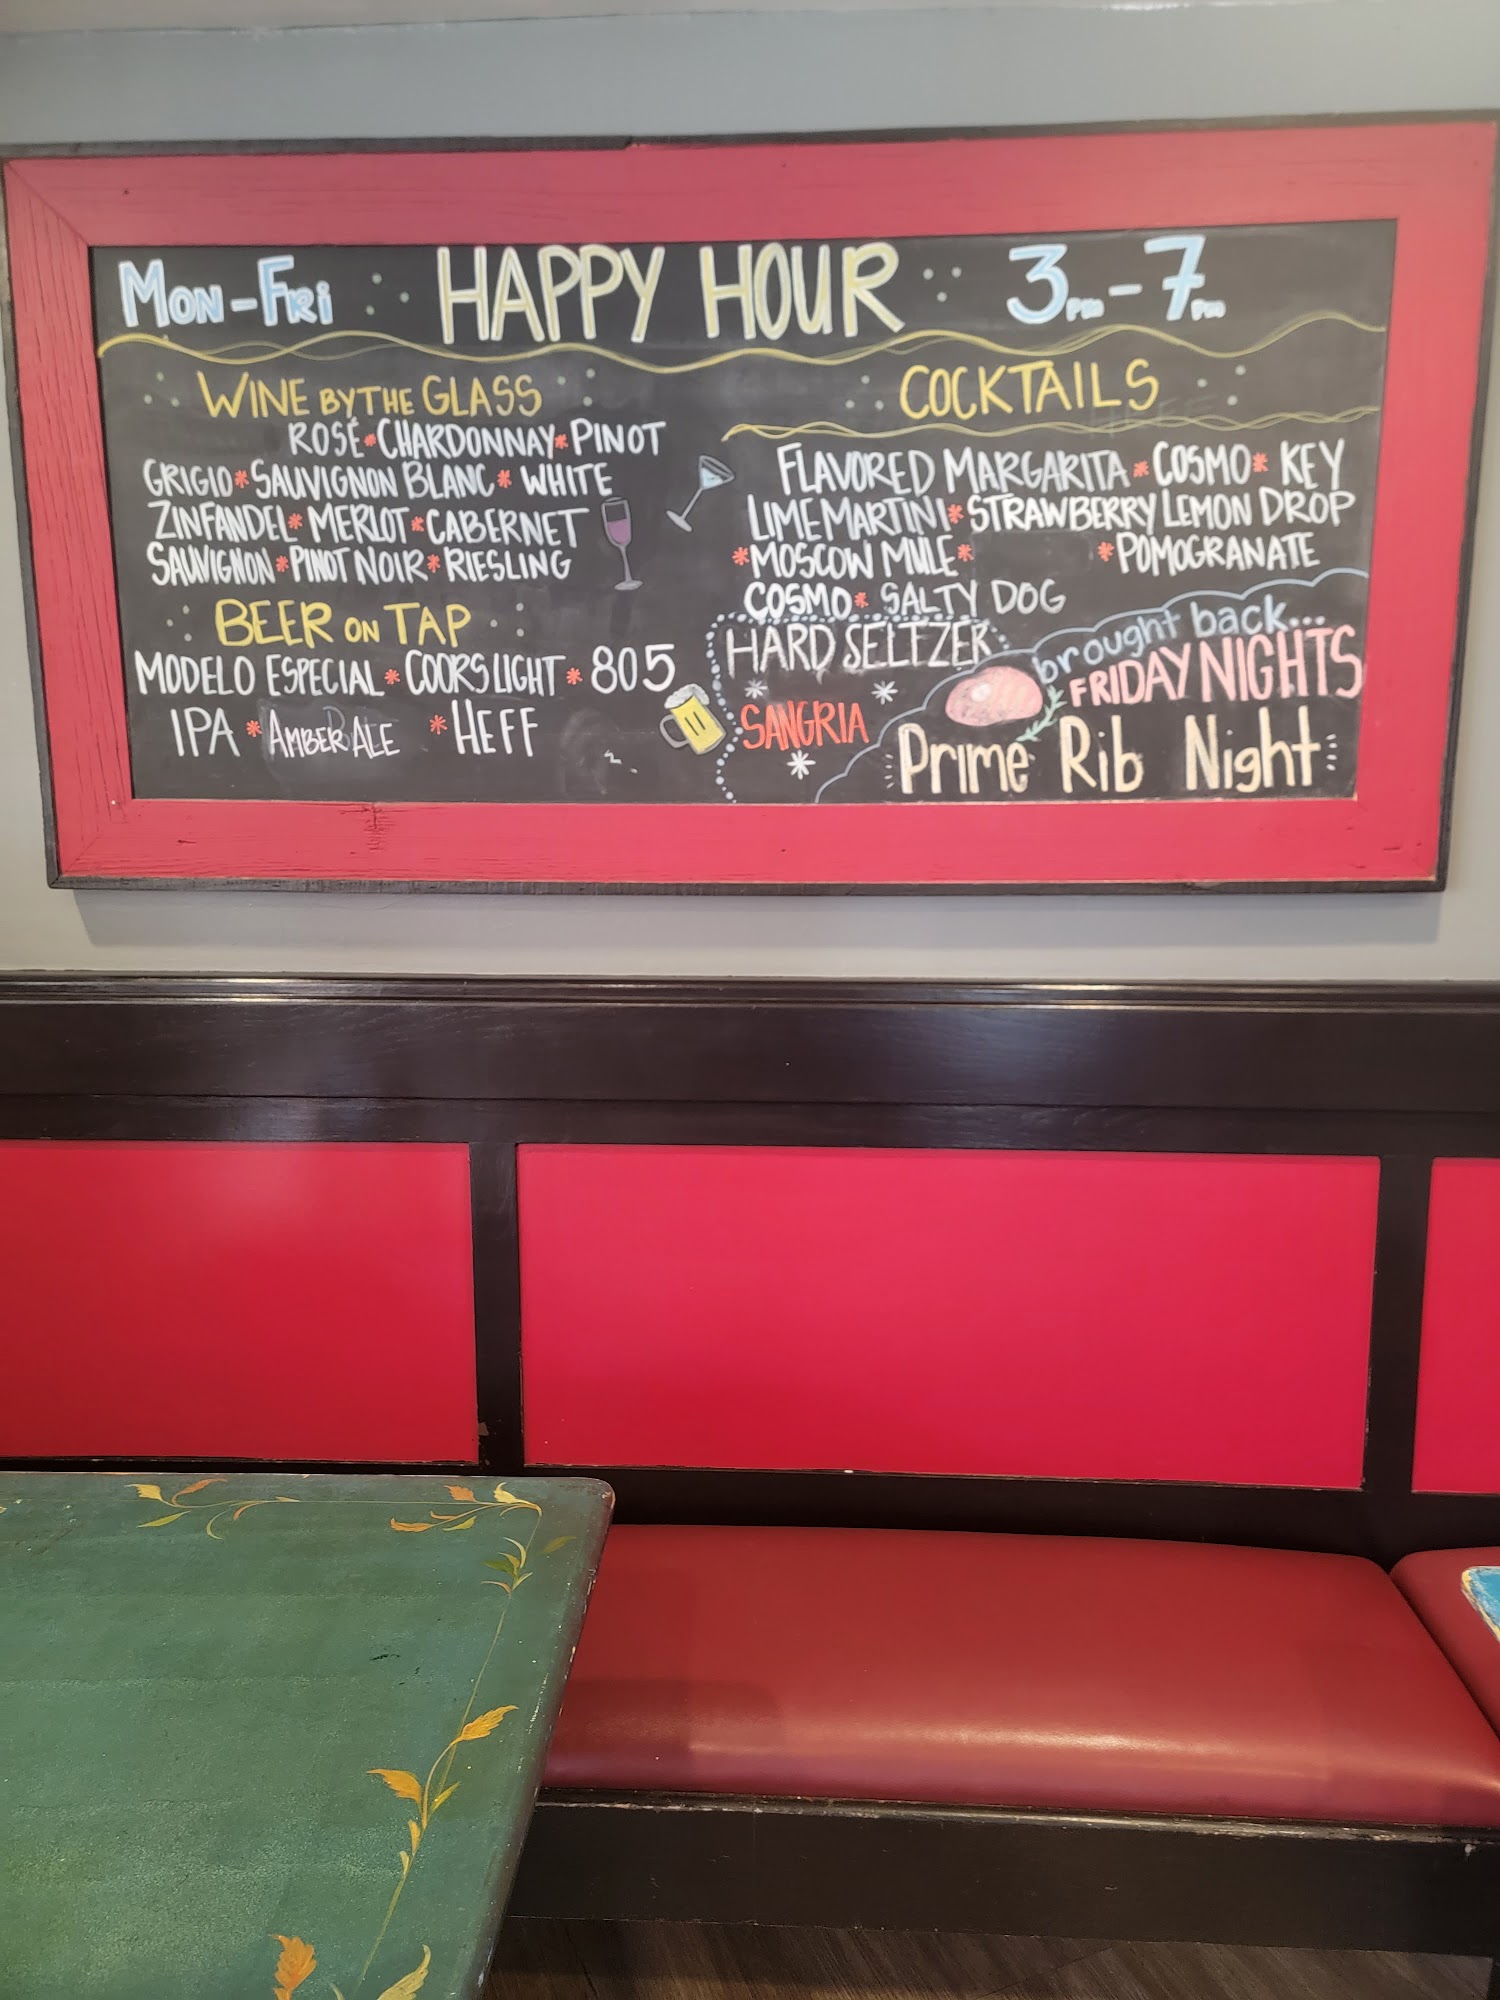 MON-FRI HAPPY HOUR 3PM-7PM
WINE BY THE GLASS
ROSÉ*CHARDONNAY*PINOT
GRIGIO*SAUVIGNON BLANC*WHITE
ZINFANDEL*MERLOT*CABERNET
SAUVIGNON*PINOT NOIR*RIESLING
BEER ON TAP
MODELO ESPECIAL*COORS LIGHT*805
IPA*AMBER ALE *HEFF
COCKTAILS
FLAVORED MARGARITA*COSMO*KEY
LIME MARTINI*STRAWBERRY LEMON DROP
*MOSCOW MULE* *POMOGRANATE
COSMO* SALTY DOG
HARD SELTZER
SANGRIA
brought back...
FRIDAY NIGHTS
Prime Rib Night